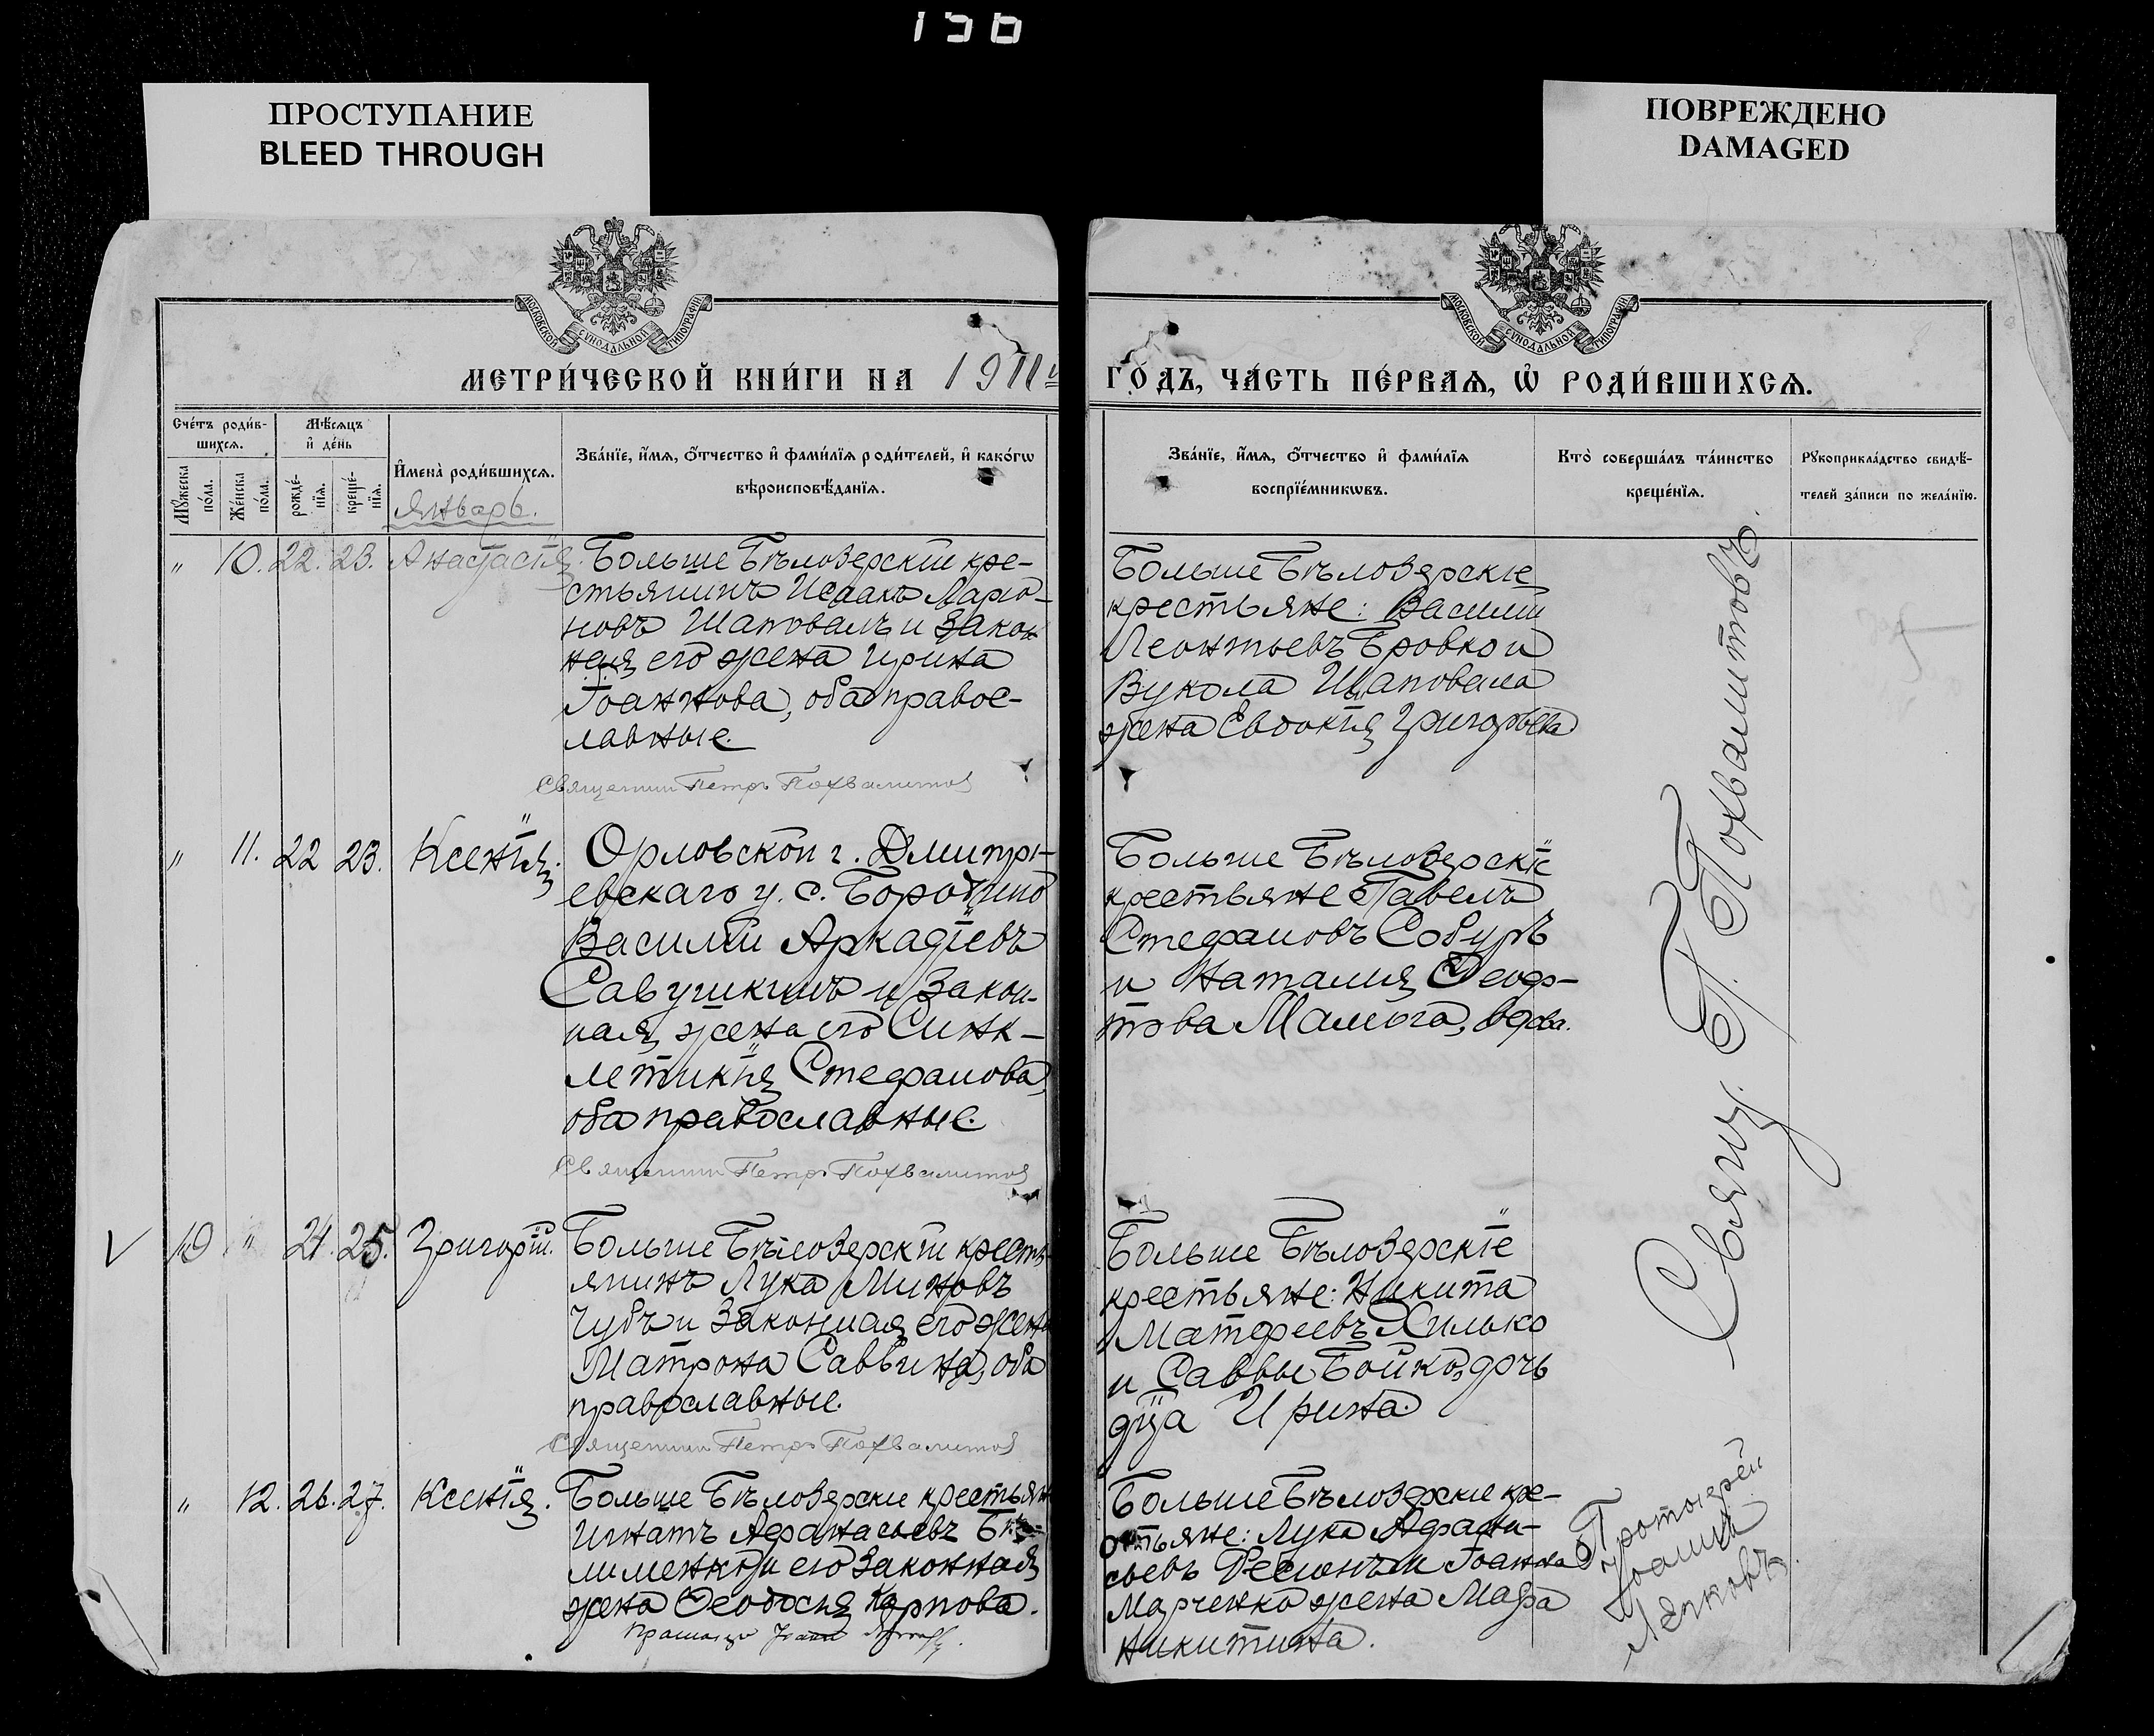 136
ПРОСТУПАНИЕ
BLEED THROUGH
ПОВРЕЖДЕНО
DAMAGED
МОСКОВСКОЙ СѴНОДАЛЬНОЙ ТИПОГРАФІИ
МОСКОВСКОЙ СѴНОДАЛЬНОЙ ТИПОГРАФІИ
МЕТРИ́ЧЕСКОЙ КНИ́ГИ НА 1911й
ГО́ДЪ, ЧА́СТЬ ПЕ́РВАѦ, Ѡ҆ РОДИ́ВШИХСѦ.
Сче́тъ роди́в-
шихсѧ.
Мꙋ́жеска по́ла.
Же́нска по́ла.
Мѣ́сѧцъ
и҆ де́нь
рожде́-
нїѧ.
креще́-
нїѧ.
И҆мена̀ роди́вшихсѧ.
Январь.
Зва́нїе, и҆́мѧ, ѻ҆́тчество и҆ фами́лїѧ роди́телей, и҆ како́гѡ
вѣроисповѣ́данїѧ.
Зва́нїе, и҆́мѧ, ѻ҆́тчество и҆ фами́лїѧ
воспрїе́мникѡвъ.
Кто̀ соверша́лъ та́инство
креще́нїѧ.
Рꙋкоприкла́дство свидѣ́-
телей за́писи по жела́нїю.
" 10. 22. 23. Анастасія.
Больше Бѣлозерскій кре-
стьянинъ Исаакъ Ларіо-
новъ Шаповалъ и закон
ная его жена Ирина
Іоаннова, оба правос-
лавные.
Священник Петръ Похвалитов
Больше Бѣлозерскіе
крестьяне: Василій
Леонтьевъ Бровко и
Вукола Шаповала
жена Евдокія Григорьева
" 11. 22 23. Ксенія.
Орловской г. Дмитрі-
евскаго у. с. Бородино
Василій Аркадіевъ
Савушкинъ и закон-
ная жена его Синк-
летикія Стефанова,
оба православные.
Священник Петръ Похвалитов
Больше Бѣлозерскіе
крестьяне Павелъ
Стефановъ Собуръ
и Наталия Ѳеоф-
това Малыга, вдова.
Свящ. П. Похвалитовъ.
10 " 24. 25. Григорій.
Больше Бѣлозерскій кресть-
янинъ Лука Миновъ
Чубъ и законная его жена
Матрона Саввина, оба
православные.
Священник Петръ Похвалитов
Больше Бѣлозерскіе
крестьяне: Никита
Матфеевъ Хилько
и Саввы Бойко, дочь
дѣца Ирина.
" 12. 26. 27. Ксенія.
Больше Бѣлозерские крестьян
Игнатъ Афанасьевъ
и его законная
жена Ѳеодосия Карпова.
Больше Бѣлозерские кре-
стьяне: Лука Афана-
сьевъ и Іоанна
Марченка жена Марфа
Никитина.
Протоіерей
Іоаннъ